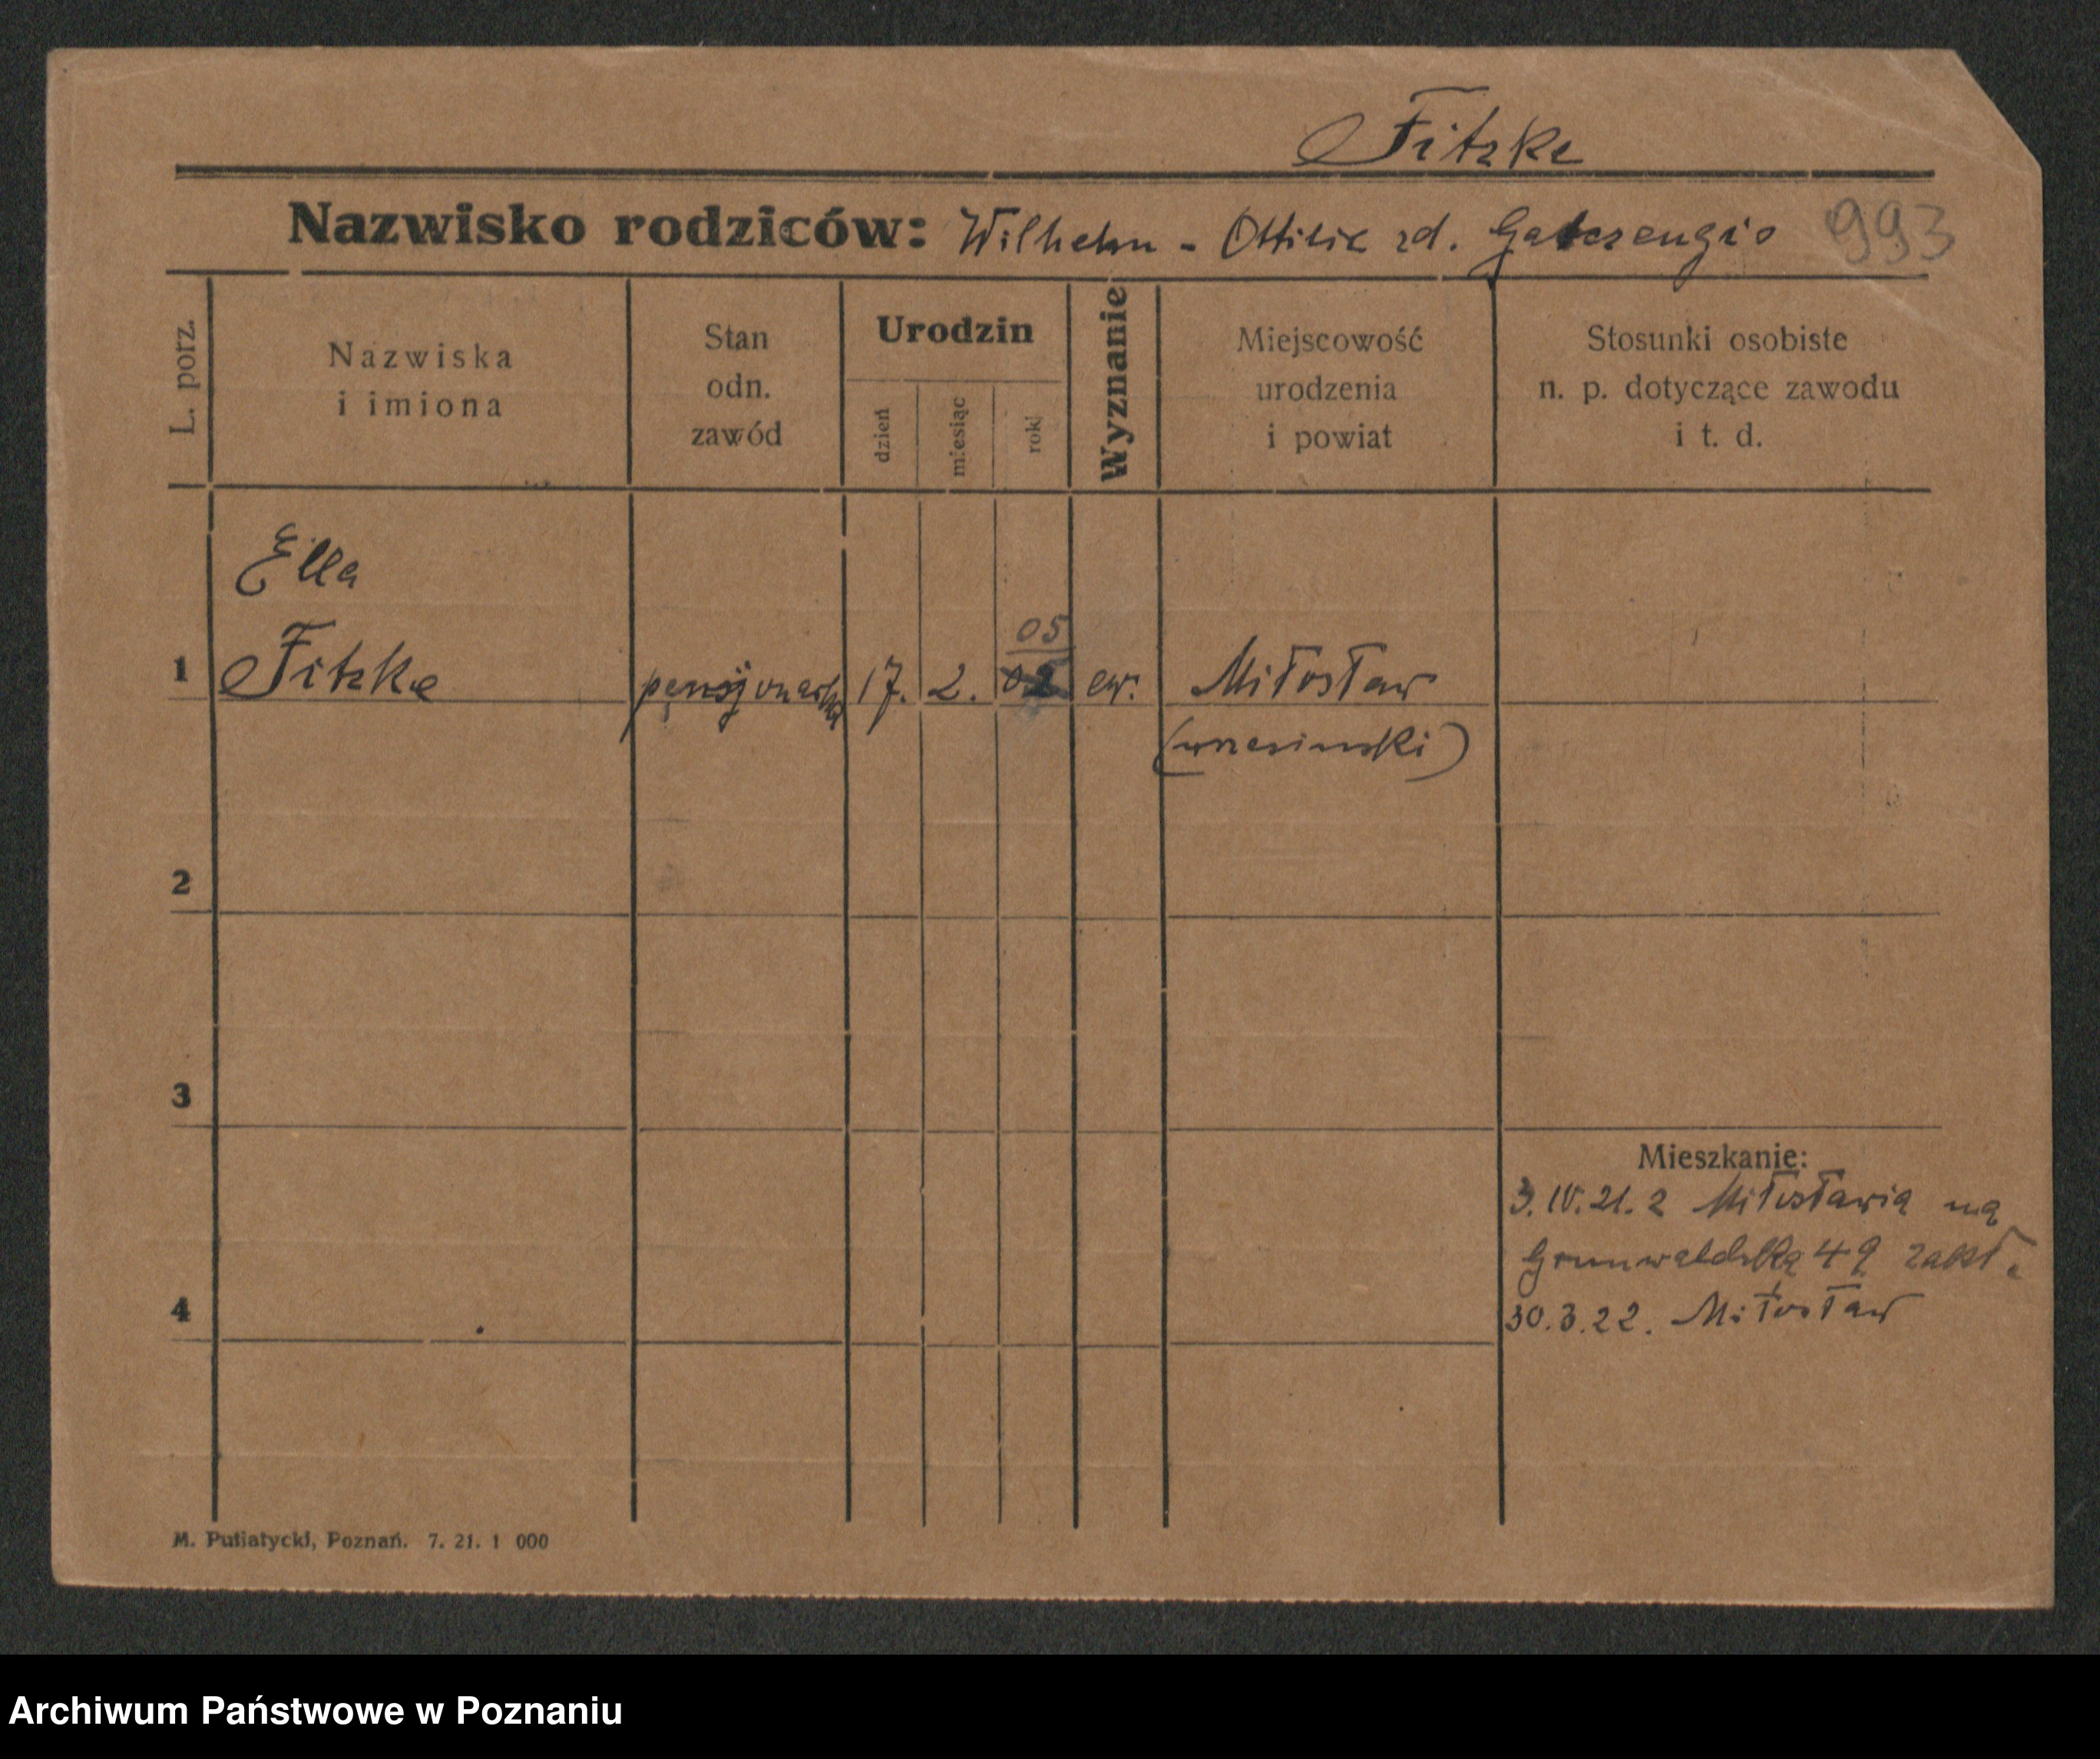 Fitzke
Nazwisko rodziców: Wilhelm - Ottilie zd.
993
L. porz.
Nazwiska
i imiona
Stan
odn.
zawód
Urodzin
dzień
miesiąc
rok
Wyznanie
Miejscowość
urodzenia
i powiat
Stosunki osobiste
n. p. dotyczące zawodu
i t. d.
Ella
05
1 Fitzke pensjonarka 17. 2. ew. Miłosław
(wrzesinski)
2
3
Mieszkanie:
3. IV. 21. z Miłosławia na
Grunwaldzka 49
4
30.3.22. Miłosław
M. Putiatycki, Poznań. 7. 21. 1 000
Archiwum Państwowe w Poznaniu